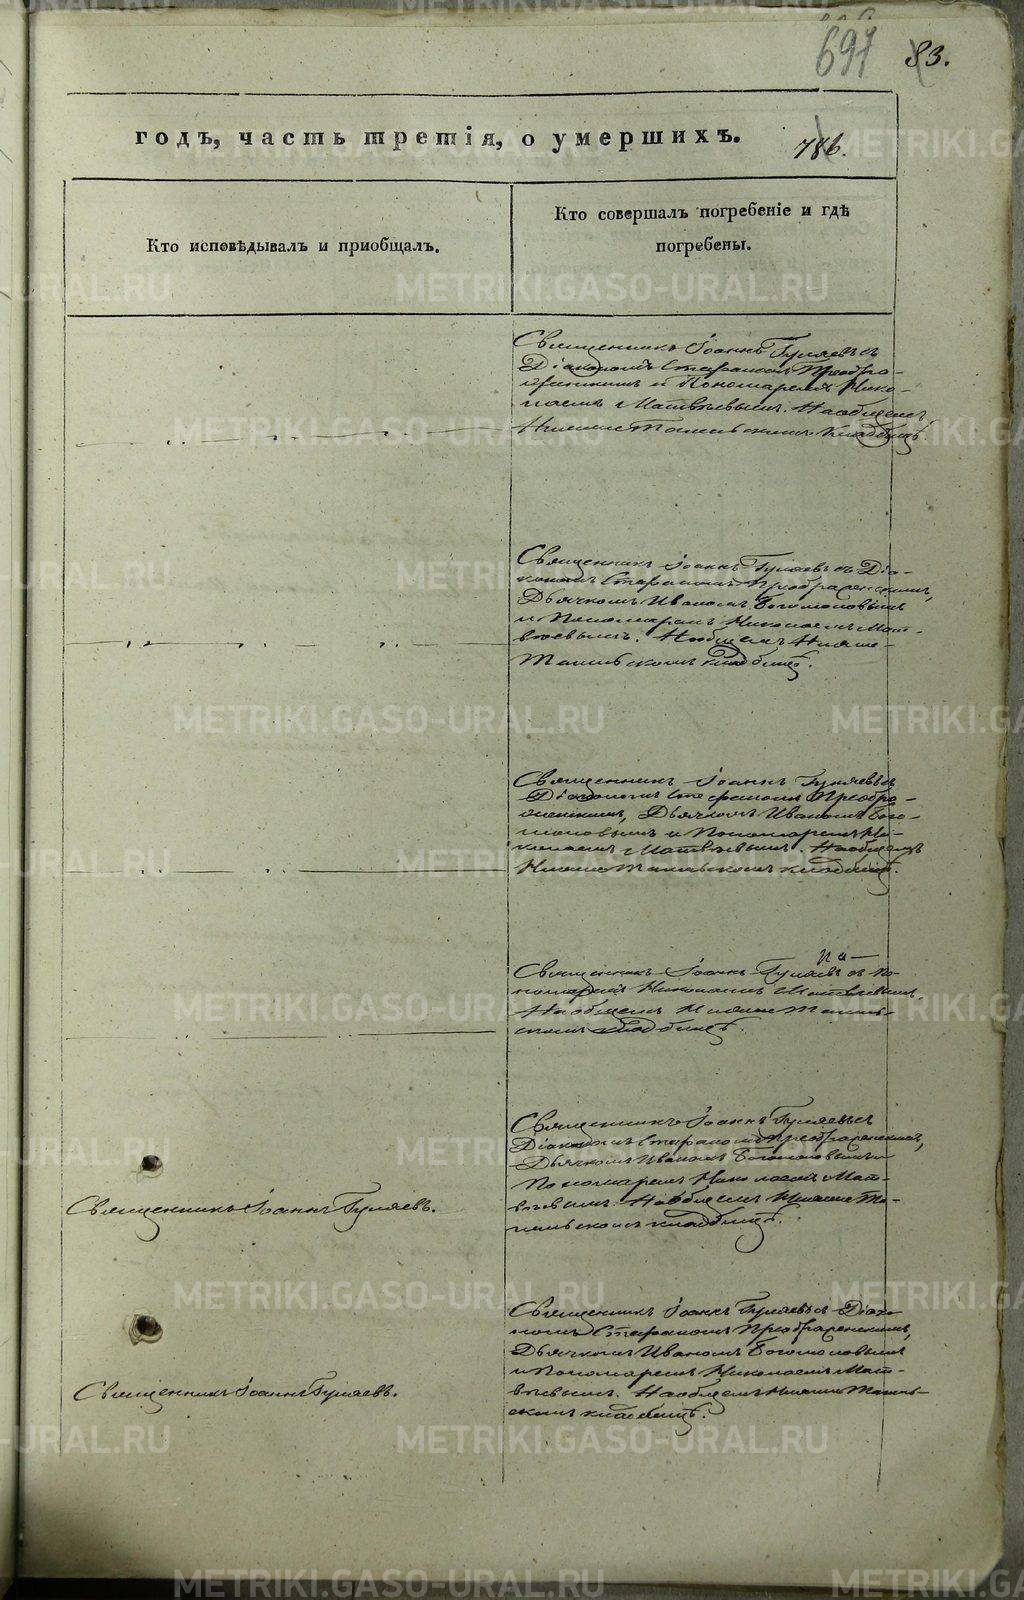 697 83.
годъ, часть третія, о умершихъ. 786.
Кто исповѣдывалъ и приобщалъ.
Кто совершалъ погребеніе и гдѣ
погребены.
Священникъ Іоаннъ Гуляевъ съ
Діакономъ Стефаномъ Преобра-
женскимъ и Пономаремъ Нико-
лаемъ Матвѣевымъ. На общемъ
Нижне Тагильскомъ кладбищѣ.
Священникъ Іоаннъ Гуляевъ съ Діа-
кономъ Стефаномъ Преображенскимъ,
Дьячкомъ Иваномъ Богомоловымъ
и Пономаремъ Николаемъ Мат-
вѣевымъ. На общемъ Нижне-
Тагильскомъ кладбищѣ.
Священникъ Іоаннъ Гуляевъ съ
Діакономъ Стефаномъ Преобра-
женскимъ, Дьячкомъ Иваномъ Бого-
моловымъ и Пономаремъ Ни-
колаемъ Матвѣевымъ. На общемъ
Нижне Тагильскомъ кладбищѣ.
Священникъ Іоаннъ Гуляевъ съ По-
номаремъ Николаемъ Матвѣевымъ.
На общемъ Нижне Тагиль-
скомъ кладбищѣ.
Священникъ Іоаннъ Гуляевъ.
Священникъ Іоаннъ Гуляевъ съ
Діакономъ Стефаномъ Преображенскимъ,
Дьячкомъ Иваномъ Богомоловымъ и
Пономаремъ Николаемъ Мат-
вѣевымъ. На общемъ Нижне Та-
гильскомъ кладбищѣ.
Священникъ Іоаннъ Гуляевъ.
Священникъ Іоаннъ Гуляевъ съ Діако-
номъ Стефаномъ Преображенскимъ,
Дьячкомъ Иваномъ Богомоловымъ
и Пономаремъ Николаемъ Мат-
вѣевымъ. На общемъ Нижне Тагиль-
скомъ кладбищѣ.
METRIKI.GASO-URAL.RU